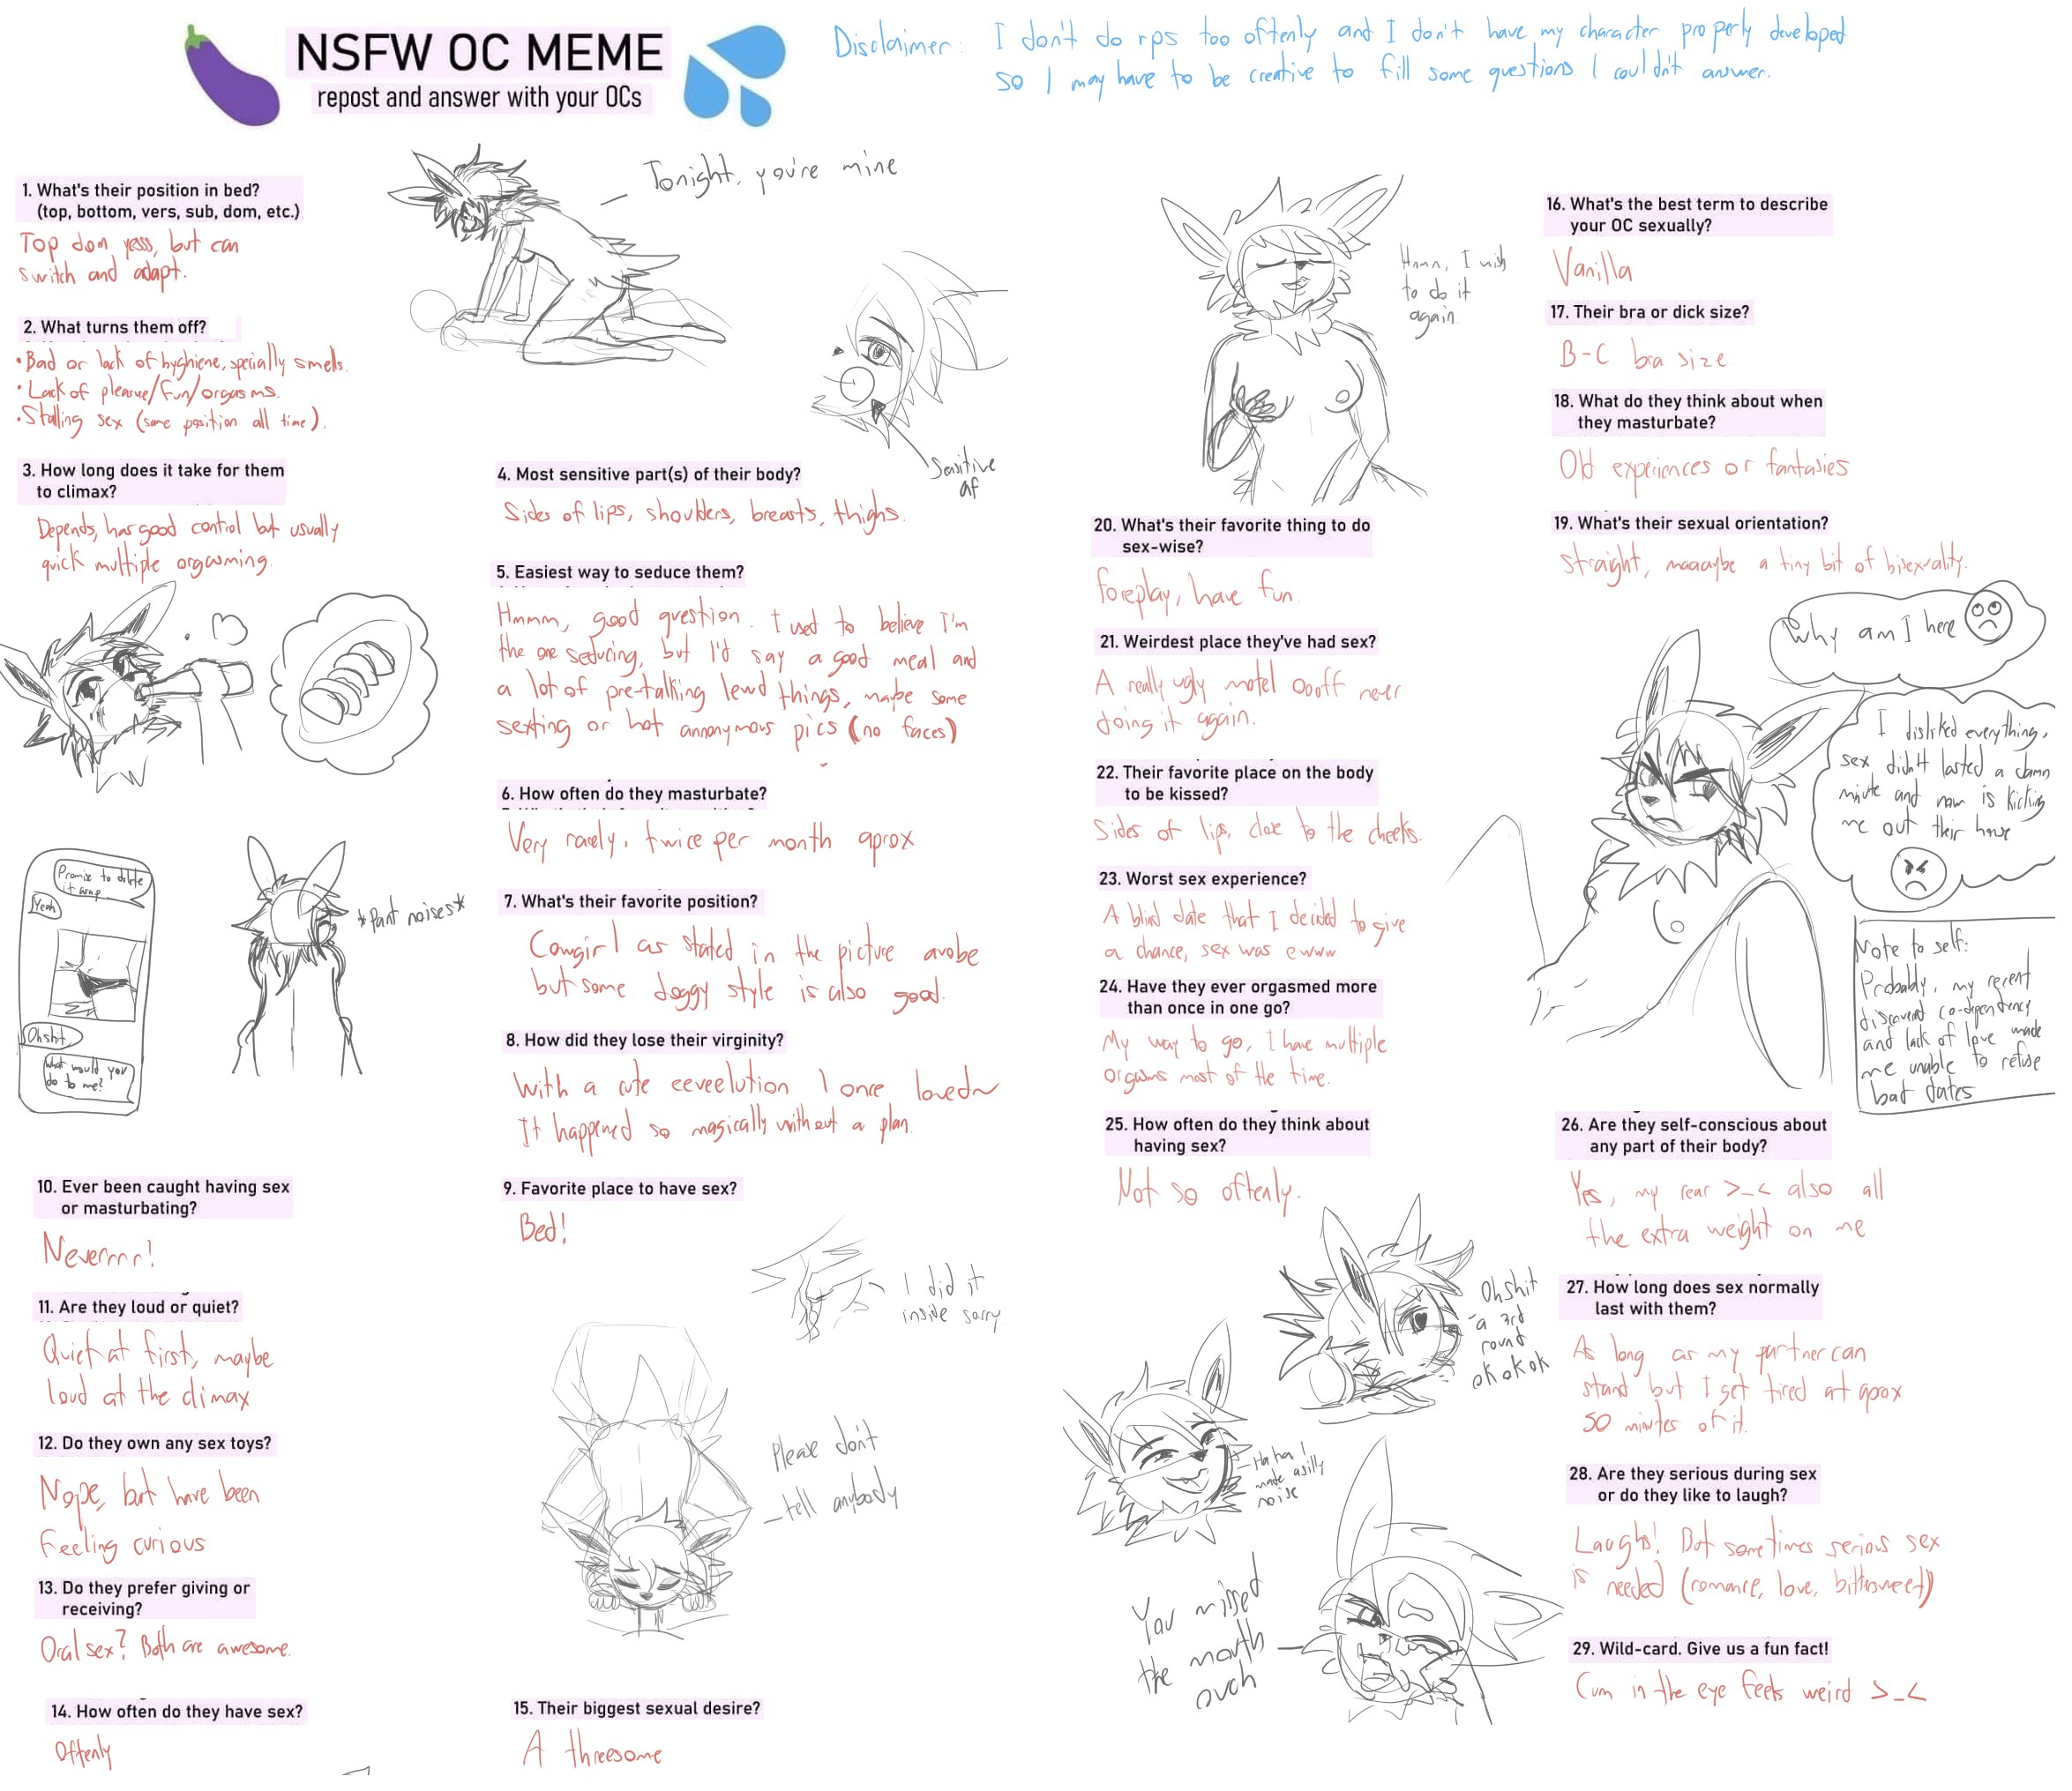 NSFW OC MEME
repost and answer with your OCs
Disclaimer: I don't do rps too oftenly and I don't have my character properly developed
so I may have to be creative to fill some questions I couldn't answer.
1. What's their position in bed?
(top, bottom, vers, sub, dom, etc.)
Top dom yesss, but can
switch and adapt.
Tonight, you're mine
2. What turns them off?
•Bad or lack of byghiene, specially smells.
•Lack of pleasure/fun/orgasms.
•Stalling sex (same position all time).
3. How long does it take for them
to climax?
Depends, has good control but usually
quick multiple orgasming.
Sensitive
af
4. Most sensitive part(s) of their body?
Sides of lips, shoulders, breasts, thighs.
5. Easiest way to seduce them?
Hmmm, good question. I used to believe I'm
the one seducing, but I'd say a good meal and
a lot of pre-talking lewd things, maybe some
sexting or hot annonymous pics (no faces)
6. How often do they masturbate?
Very rarely, twice per month aprox
Promise to delete
it
Yeah
Ohshit
What would you
do to me?
*Pant noises*
7. What's their favorite position?
Cowgirl as stated in the picture avobe
but some doggy style is also good.
8. How did they lose their virginity?
With a cute eeveelution I once loved~
It happened so magically without a plan.
9. Favorite place to have sex?
Bed!
10. Ever been caught having sex
or masturbating?
Neverrrr!
11. Are they loud or quiet?
Quiet at first, maybe
loud at the climax
12. Do they own any sex toys?
Nope, but have been
feeling curious
13. Do they prefer giving or
receiving?
Oral sex? Both are awesome.
14. How often do they have sex?
Oftenly
I did it
inside sorry
Please don't
tell anybody
15. Their biggest sexual desire?
A threesome
Hmmn, I wish
to do it
again.
16. What's the best term to describe
your OC sexually?
Vanilla
17. Their bra or dick size?
B-C bra size
18. What do they think about when
they masturbate?
Old experiences or fantasies
19. What's their sexual orientation?
Straight, maaaybe a tiny bit of bisexuality.
20. What's their favorite thing to do
sex-wise?
foreplay, have fun.
21. Weirdest place they've had sex?
A really ugly motel Oooff never
doing it again.
22. Their favorite place on the body
to be kissed?
Sides of lips, close to the cheeks.
23. Worst sex experience?
A blind date that I decided to give
a chance, sex was ewww.
24. Have they ever orgasmed more
than once in one go?
My way to go, I have multiple
orgasms most of the time.
25. How often do they think about
having sex?
Not so oftenly.
Why am I here
I disliked everything,
sex didn't lasted a damn
minute and now is kicking
me out their house
Note to self:
Probably, my recent
discovered co-dependency
and lack of love made
me unable to refuse
bad dates
26. Are they self-conscious about
any part of their body?
Yes, my rear >_< also all
the extra weight on me
27. How long does sex normally
last with them?
As long as my partner can
stand but I get tired at aprox
50 minutes of it.
28. Are they serious during sex
or do they like to laugh?
Laughs! But sometimes serious sex
is needed (romance, love, bittersweet)
29. Wild-card. Give us a fun fact!
Cum in the eye feels weird >_<
Ohshit
a 3rd
round
okokok
Haha!
made a silly
noise
You missed
the mouth
ouch